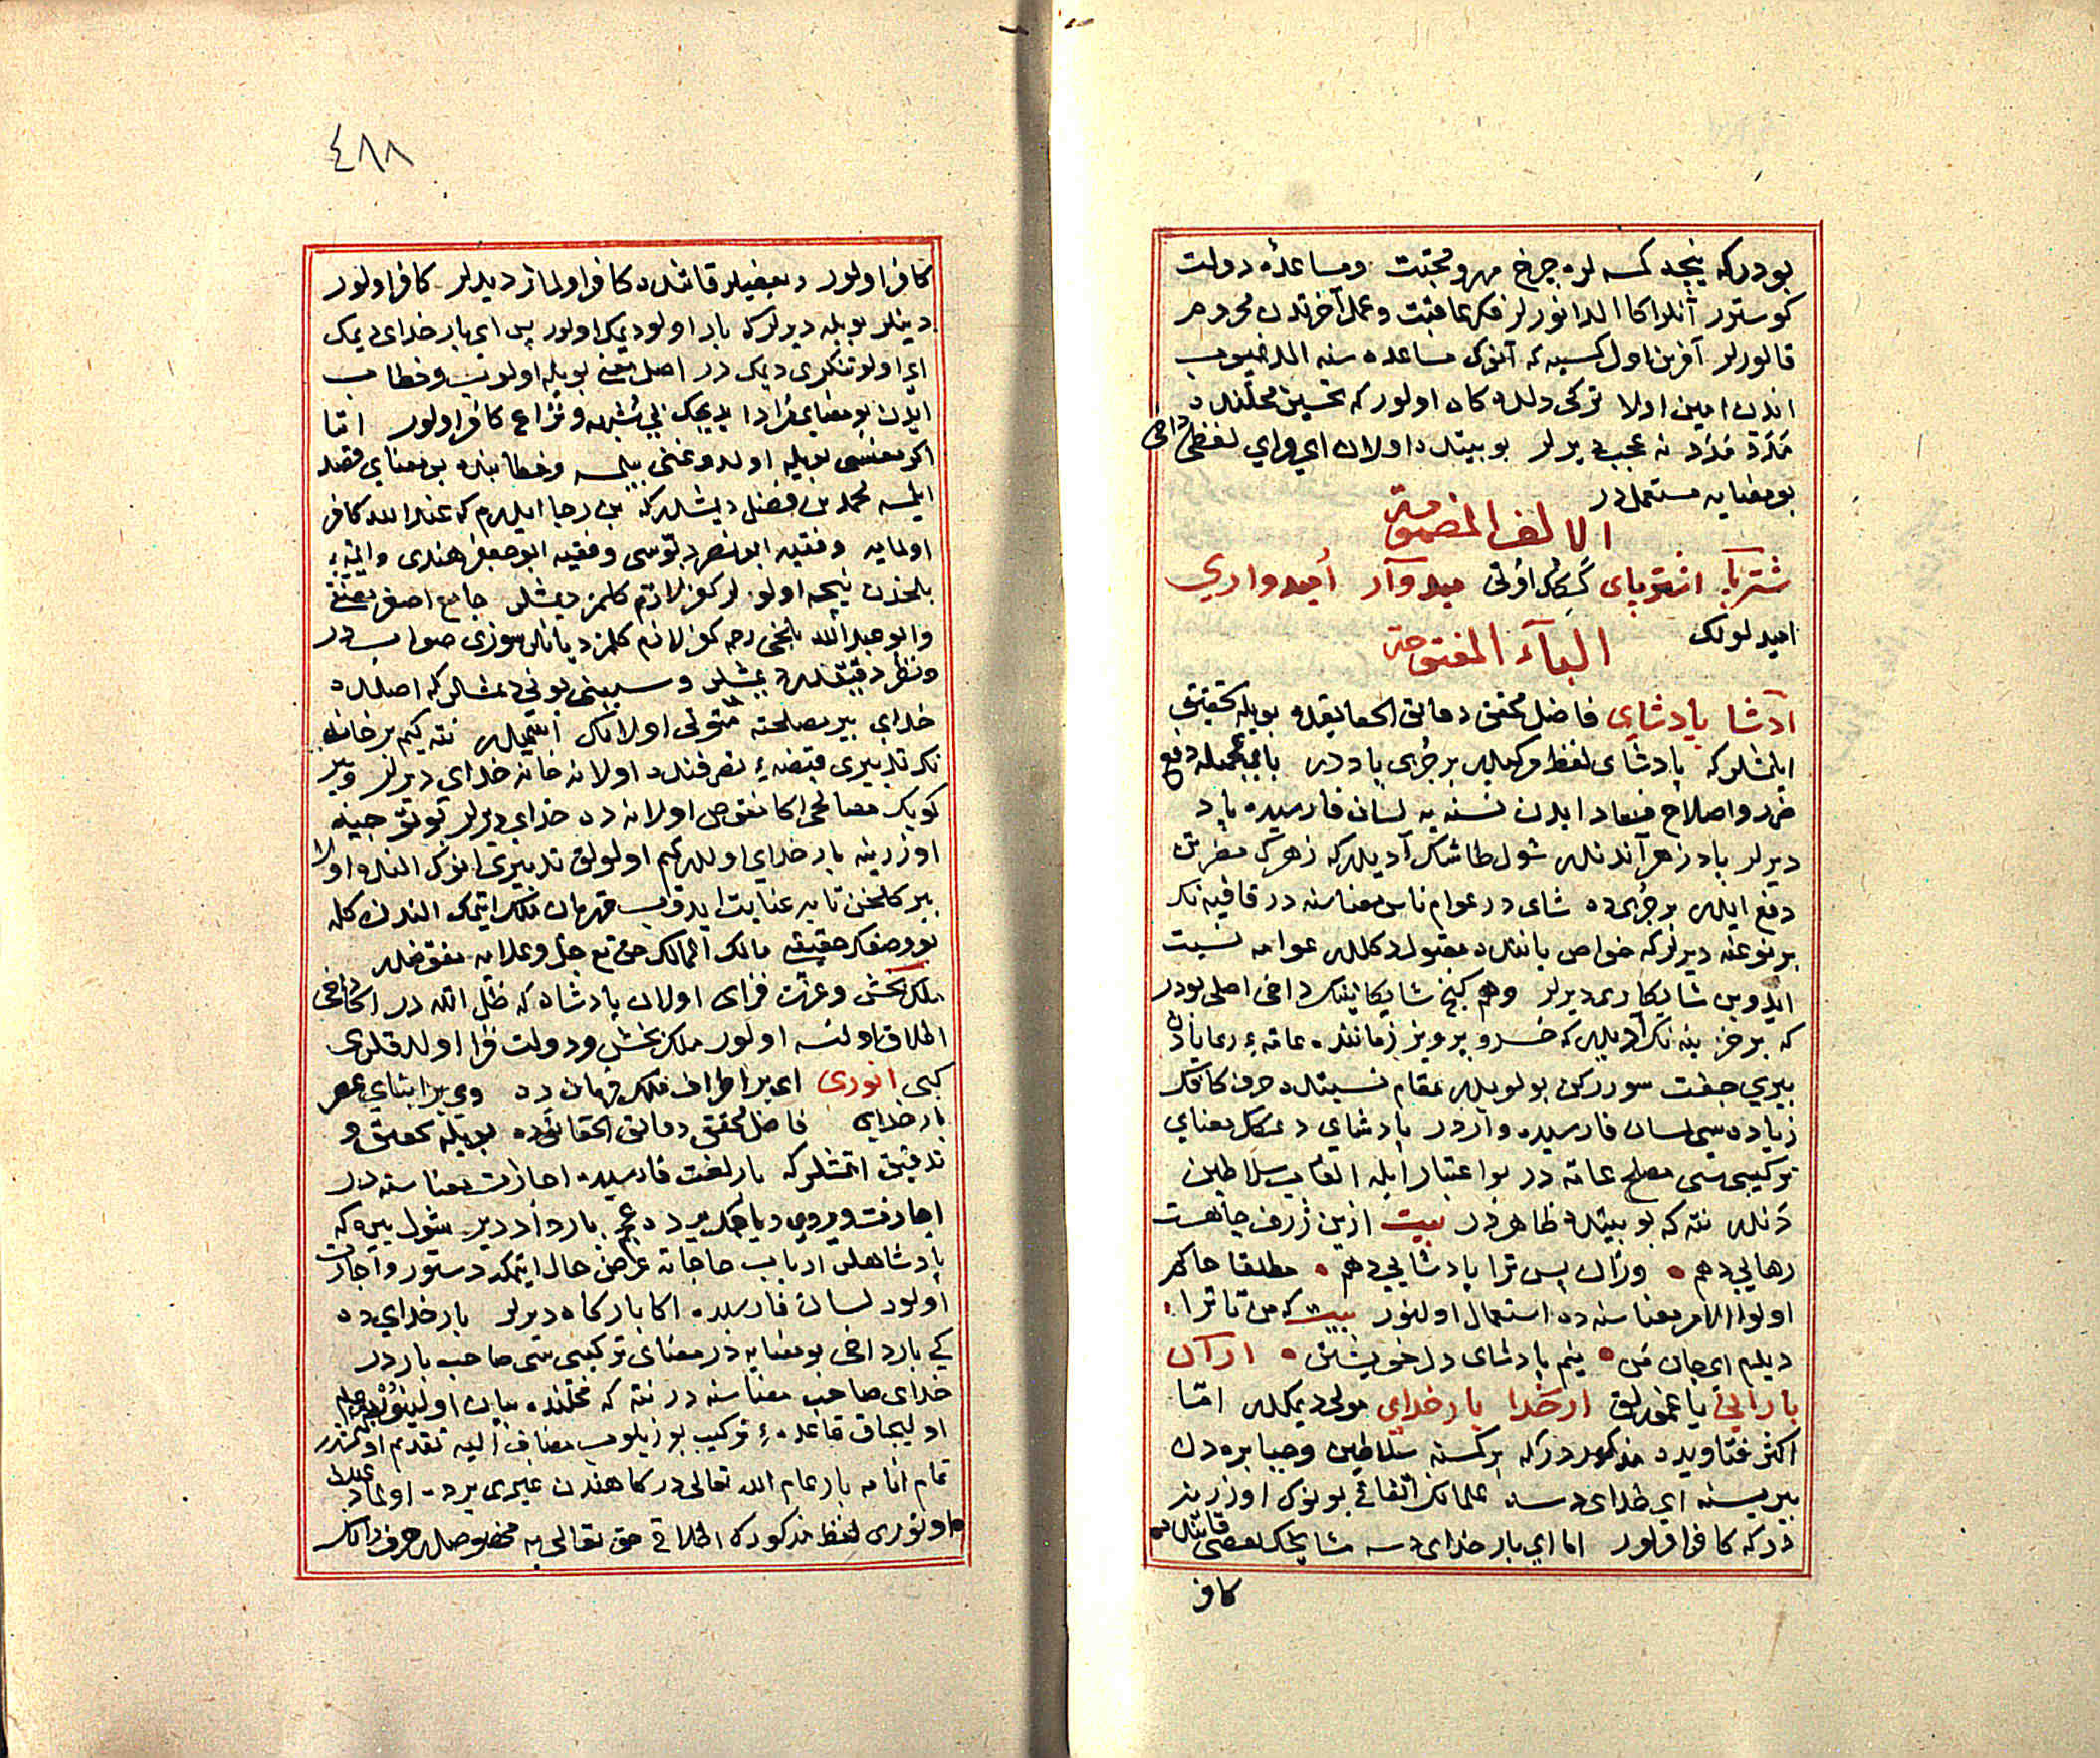 بودركه نیجه كمسه لره چرخ مهر و محبت ومساعدۀ دولت
كوسترر آنلر اكا الدانورلر فكر عاقبت وعمل آخرتدن محروم
قالورلر آفرین اول كسیه كه آنوك مساعده سنه الدنمیوب
اندن امین اولا تركی دلده كاه اولور كه تحسین محلنده
نه عجب دیرلر بو بیتده اولان ای وای لفظی داخی
بو معنایه مستعملدر
الالف المضمومة
اشترپای اوتی امیدوار امیدواری
امیدلولك
الباء المفتوحة
پادشا پادشای فاضل محقق دقائق الحقایقده بویله تحقیق
ایلمشلر كه پادشای لفظ مركبدر بر جزئی پاددر بای عجمیله دفع
ضرر واصلاح فساد ایدن نسنه یه لسان فارسیده پاد
دیرلر پادزهر آندندر شول طاشك آدیدر كه زهرك مضرتن
دفع ایدر بر جزئی ده شای در عوام ناس معناسنه در قافیه نك
بر نوعنه دیرلر كه خواص یاننده مقبول دكلدر عوامه نسبت
ایدوب شایكان دیرلر وهم كنج شایكانینك داخی اصلی بودر
كه بر خزینه نك آدیدر كه خسرو پرویز زماننده عامۀ رعایادن
بیری جفت سوررکن بولویدر مقام نسبتده حرف كافك
زیاده سی لسان فارسیده واردر پادشای دیمكك معنای
تركیبی سی مصلح عامه در بو اعتبار ایله القاب سلاطین
دندر نته كه بو بیتده ظاهردر بیت ازین ژرف چاهت
رهایی دهم وزان پس ترا پادشایی دهم مطلقا حاكم
اولوا الامر معناسنه ده استعمال اولنور بیت كه من تا ترا
دیدم ای جان من نیم پادشای دل خویشتن
بارانی یاغمورلق بارخدا بارخدای مولی دیمكدر امّا
اكثر فتاویده مذكوردر كه بر كمسنه سلاطین وجبابره دن
بیریسنه ای خدای دسه علمانك اتفاقی بونوك اوزرینه
در كه كافر اولور اما ای بار خدای دسه مشایخك بعضی قاتنده
كافر
٤٨٨
كافر اولور وبعضیلر قاتنده كافر اولماز دیدلر كافر اولور
دینلر بویله دیرلر كه بار اولو دیمك اولور پس ای بار خدای دیمك
ای اولو تنكری دیمك در اصل معنی بویله اولوب وخطاب
ایدن بو معنای مراد ایدیجك بی شبهه ونزاع كافر اولور امّا
اكر معنسی بویله اولدوغنی بیلمسه وخطابنده بو معنای قصد
ایلمسه محمد بن فضل دیمشلركه بن رجا ایدرم كه عند الله كافر
اولمایه وفقیه ابو نصر دبوسی وفقیه ابو جعفر هندی وائمۀ
بلخدن نیجه اولولر كفر لازم كلمز دیمشلر جامع اصغر مصنفی
وابو عبد الله بلخی رحمه كفر لازم كلمز دیانلر سوزی صوابدر
ونظر دقیقلدر دیمشلر وسببنی بونی دیمشلر كه اصلده
خدای بیر مصلحته متولی اولانك اسمیدر نته كیم بر خانه
نك تدبیری قبضۀ تصرفنده اولانه خانه خدای دیرلر وبیر
كویك مصالحی اكا مفوض اولانه ده خدای دیرلر
اوزرینه بار خدای اولدر كیم اولولق تدبیری انوك النده اولا
بیر كلخن تابه عنایت ایدوب قهرمان ملك ایتمك الندن كله
بو وصفك حقیقتی مالك الممالك حق تع جل وعلایه مفوضدر
ملك بخش وعزت فزای اولان پادشاه كه ظل الله در اكا داخی
اطلاق اولنسه اولور ملك بخش ودولت فزا اولدقلری
كبی انوری ای بر اطراف ملك فرمان ده وی بر ابنای عصر
بار خدای فاضل محقق دقائق الحقایقده بویله تحقیق و
تدقیق اتمشلر كه بار لغت فارسیده اجازت معناسنه در
اجازت ویروب دیاجك یرده عجم بار داد دیر شول یره كه
پادشاهلر ارباب حاجاته عرض حال ایتمكه دستور واجازت
اولور لسان فارسیده اكا باركاه دیرلر بار خدای ده
كی بار داخی بو معنایه در معنای تركیبی سی صاحب باردر
خدای صاحب معناسنه در نته كه محلنده بیان اولینور
اولیجاق قاعدۀ تركیب بوزیلوب مضاف الیه تقدیم اولنمشدر
تمام انامه بار عام الله تعالی دركاهندن غیری یرده اولماز
اولدوغی لفظ مذكورك اطلاقی حق تعالی یه مخصوصدر حرف ندانك